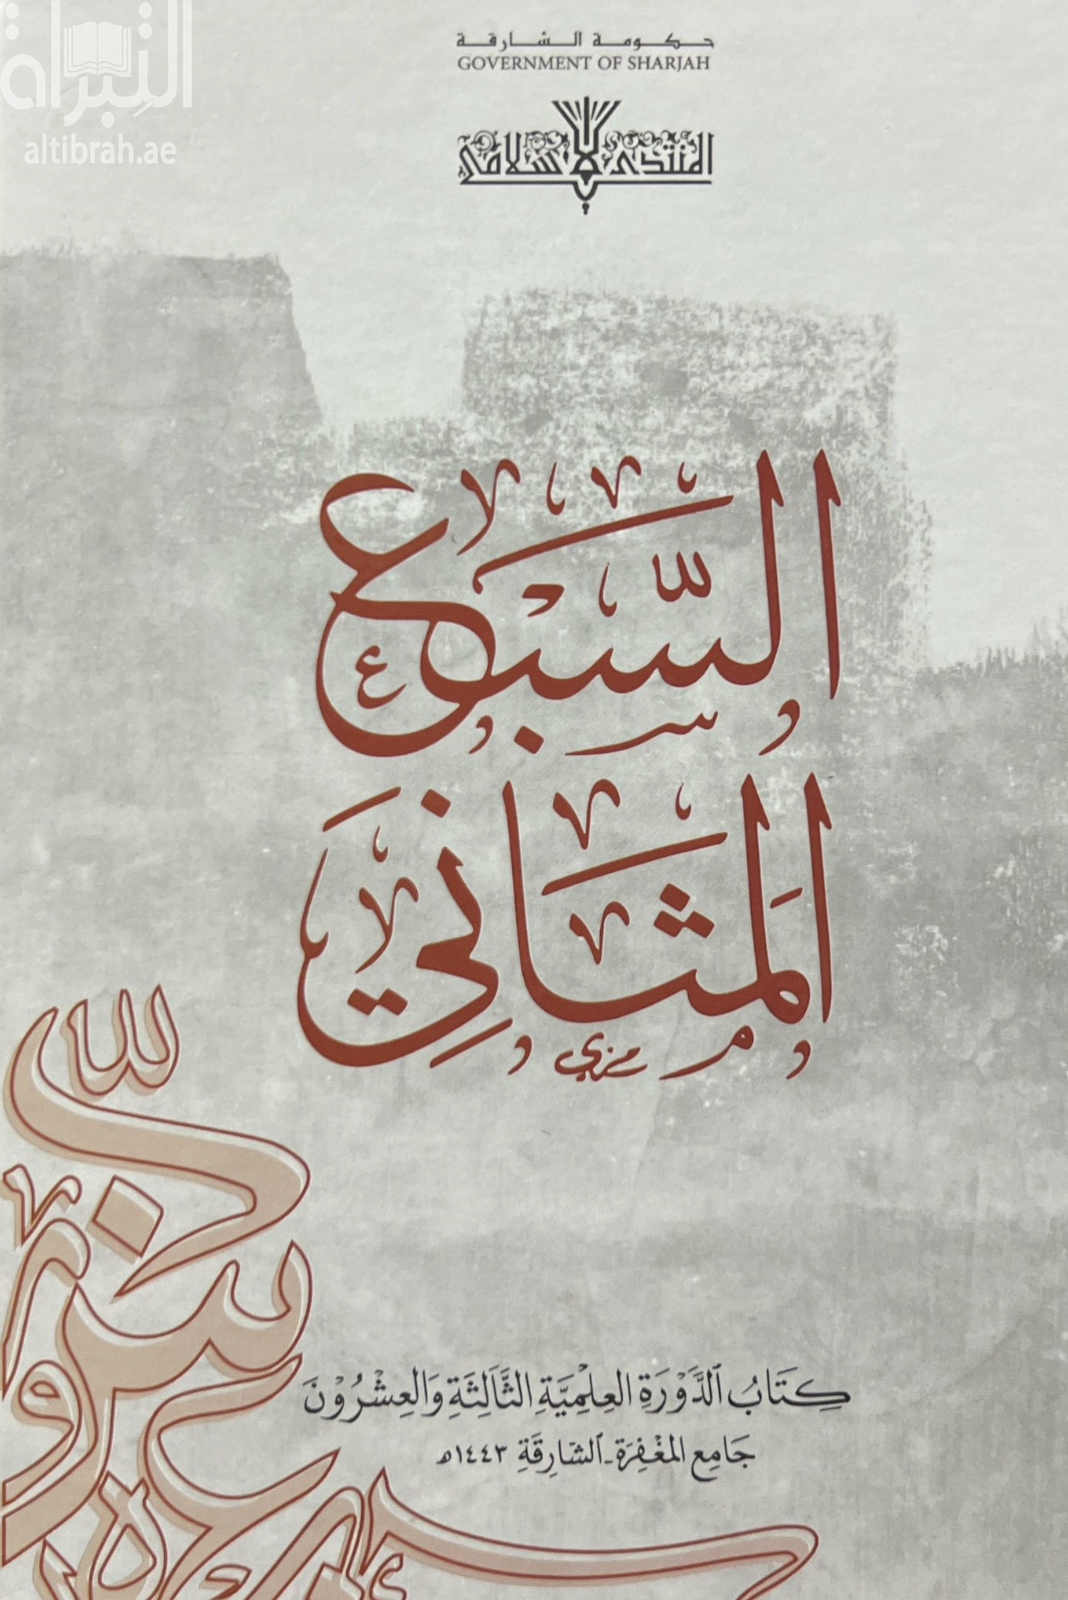 التبراه
altibrah.ae
حكومة الشارقة
GOVERNMENT OF SHARJAH
المنتدى الإسلامي
السَّبْع
المَثَانِي
كِتَابُ الدَّوْرَةِ العِلْمِيَّةِ الثَّالِثَةِ وَالعِشْرُوْنَ
جَامِع المَغْفِرَة - الشَّارِقَةِ ١٤٤٣هـ